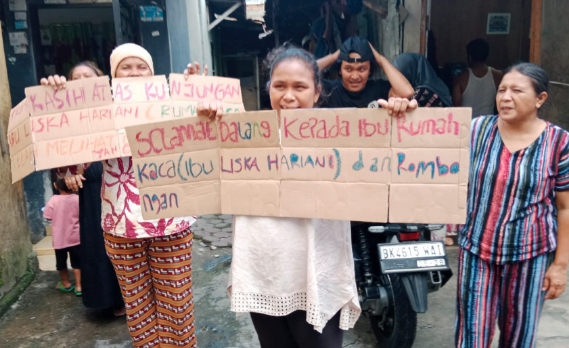 KASIH ATAS KUNJUNGAN
LISKA HARIANI (RUMAH
MELIHAT
SELAMAt DaLANg KePada IBU RUMAH
KaCa (IBU LISKA HARIANI) dan Rombo
ngan
BK 4615